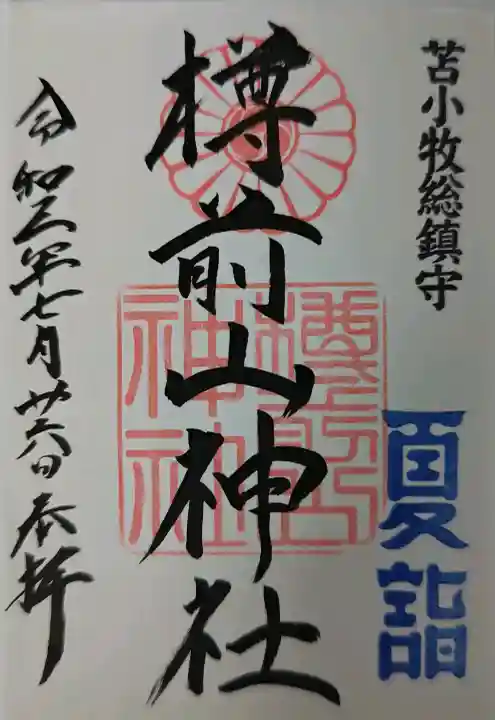 苫小牧総鎮守
夏詣
樽前山神社
樽前山神社
令和三年七月廿六日奉拝